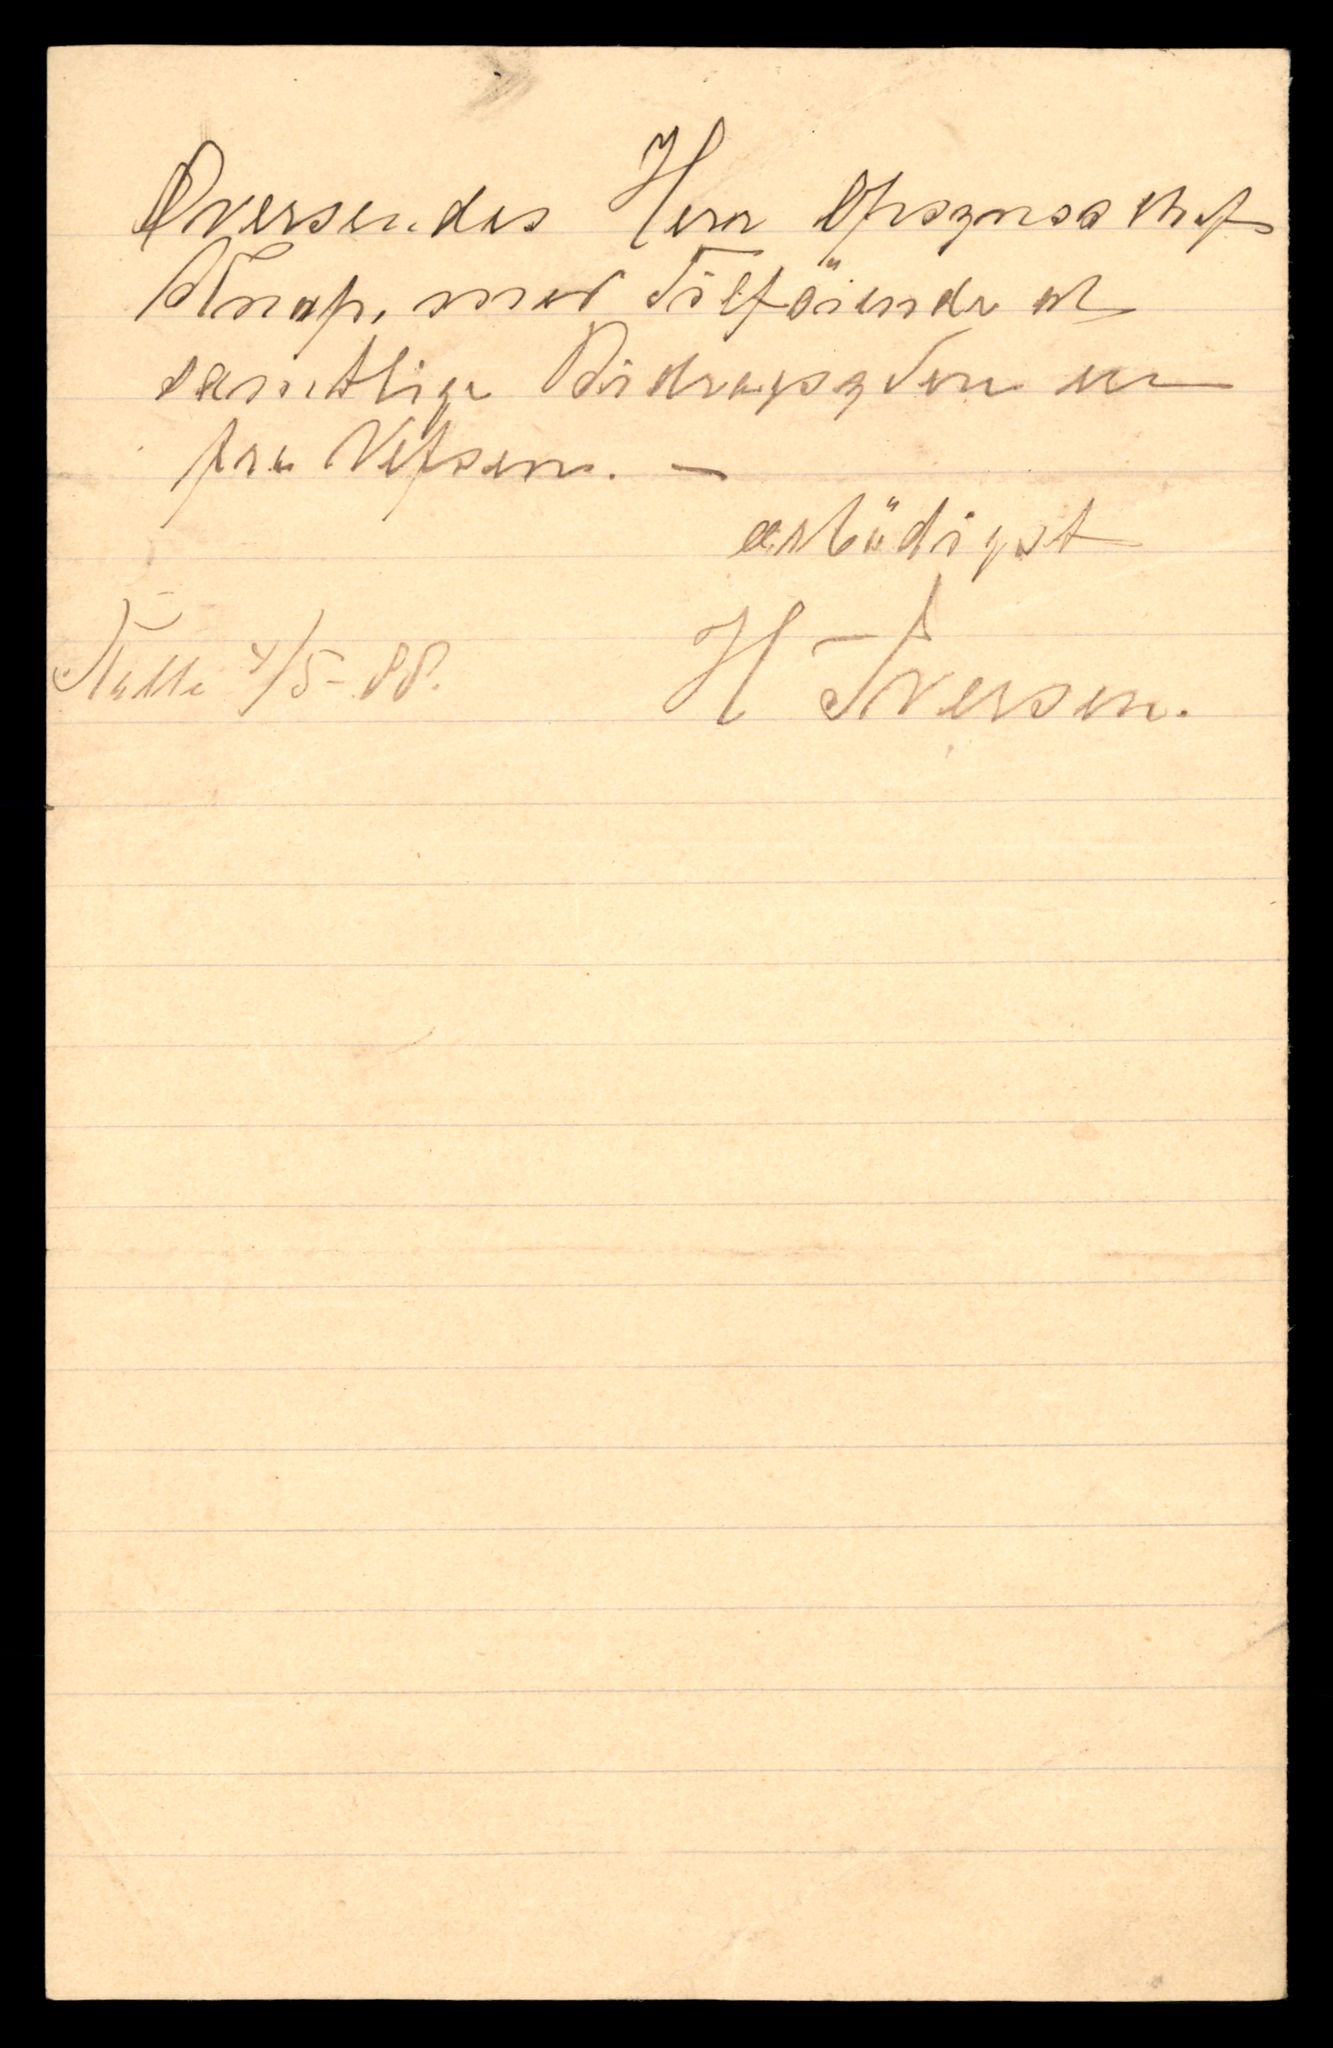 Oversendes Herr Opsynschef
Knap, med Tilföiende at
samtlige Bidragsydere er
fra Vefsen. —
ærbödigst
4/5-88. H Iversen.